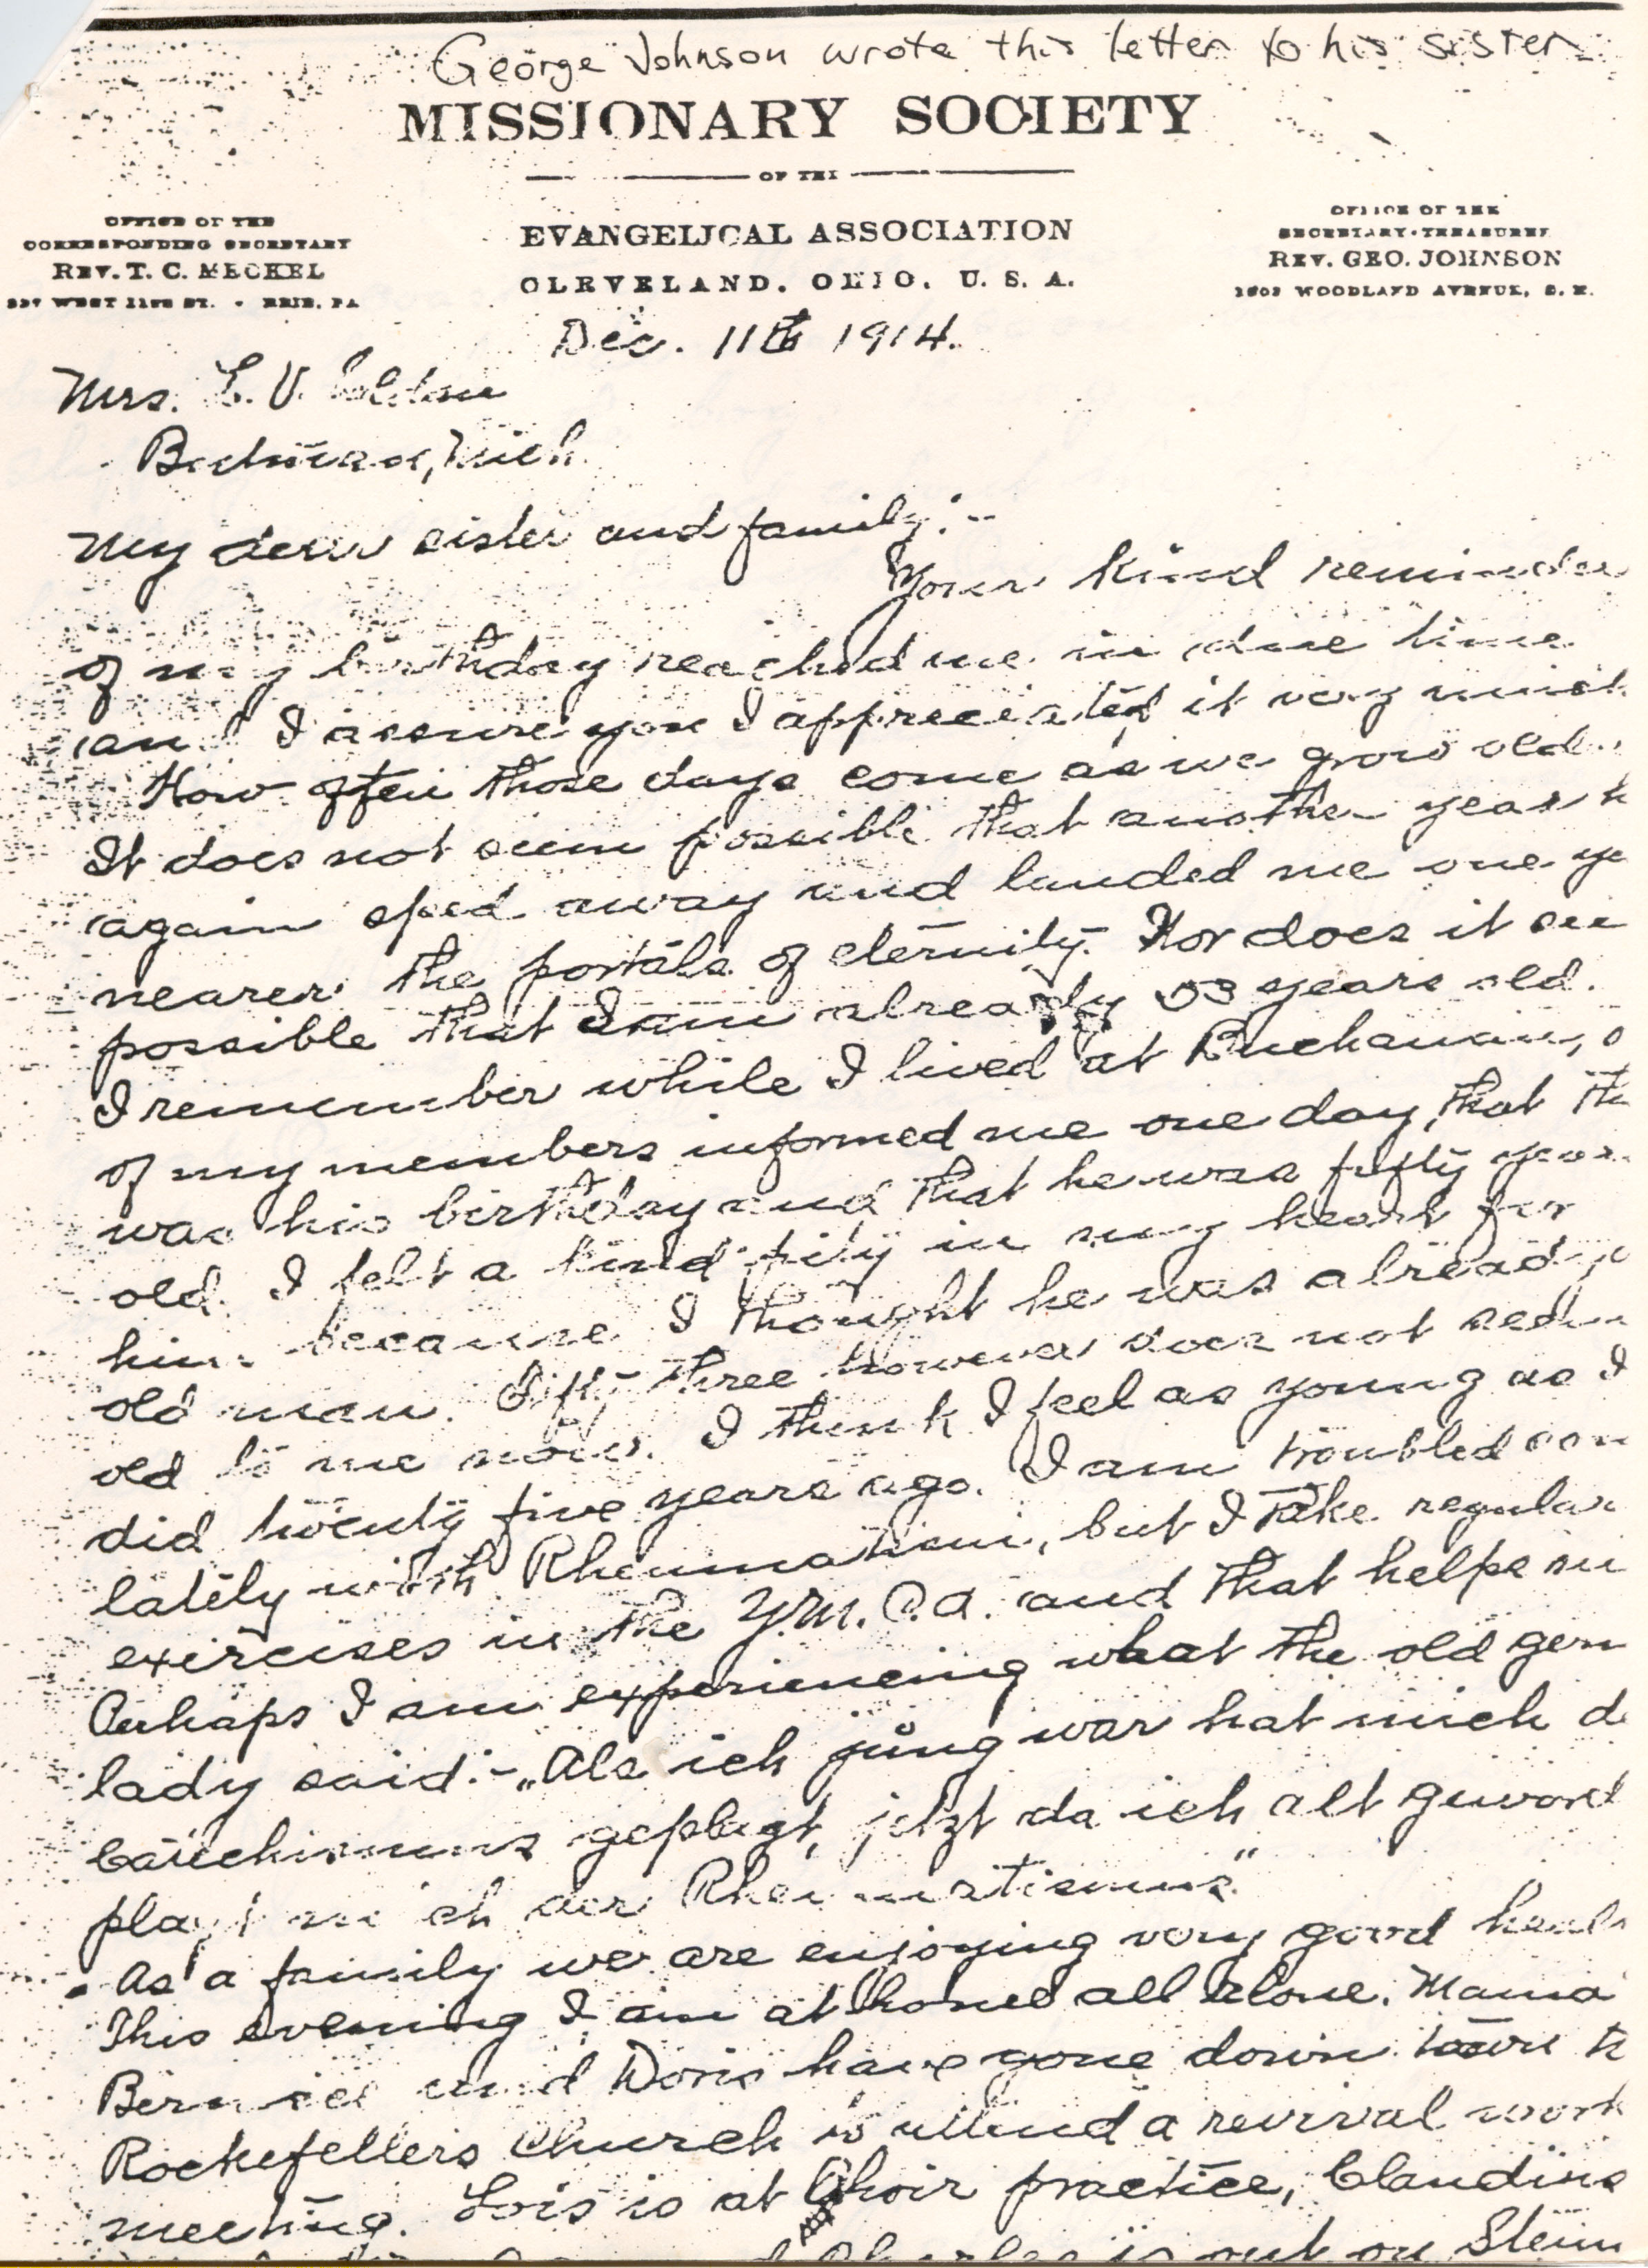 George Johnson wrote this letter to his sister
MISSIONARY SOCIETY
OF THE
OFFICE OF THE
CORRESPONDING SECRETARY
REV. T. C. MECKEL
WEST 11TH ST. • ERIE, PA
EVANGELICAL ASSOCIATION
CLEVELAND, OHIO, U. S. A.
OFFICE OF THE
SECRETARY-TREASURER
REV. GEO. JOHNSON
1903 WOODLAND AVENUE, S. E.
Dec. 11th 1914.
Mrs. E. V.
Buchanan, Mich.
My dear sister and family:--
Your kind reminder
of my birthday reached me in due time
and I assure you I appreciated it very much
How often those days come as we grow old.
It does not seem possible that another year
again sped away and landed me one ye
nearer the portals of eternity. Nor does it see
possible that I am already 53 years old.
I remember while I lived at Buchanan, o
of my members informed me one day, that th
was his birthday and that he was fifty year
old. I felt a kind pity in my heart for
him because I thought he was already
old man. Fifty three however does not seem
old to me now. I think I feel as young as I
did twenty five years ago. I am troubled som
lately with Rheumatism, but I take regular
exercises in the Y.M.C.A. and that helps m
Perhaps I am experiencing what the old germ
lady said:- „Als ich jung war hat mich d
Catechismus geplagt, jetzt da ich alt geword
plagt mich der Rheumatismus."
As a family we are enjoying very good healt
This evening I am at home all alone. Mama
Bernice and Doris have gone down town to
Rockefellers Church to attend a revival work
meeting. Lois is at Choir practice, Claudine
Charles is out on Stein